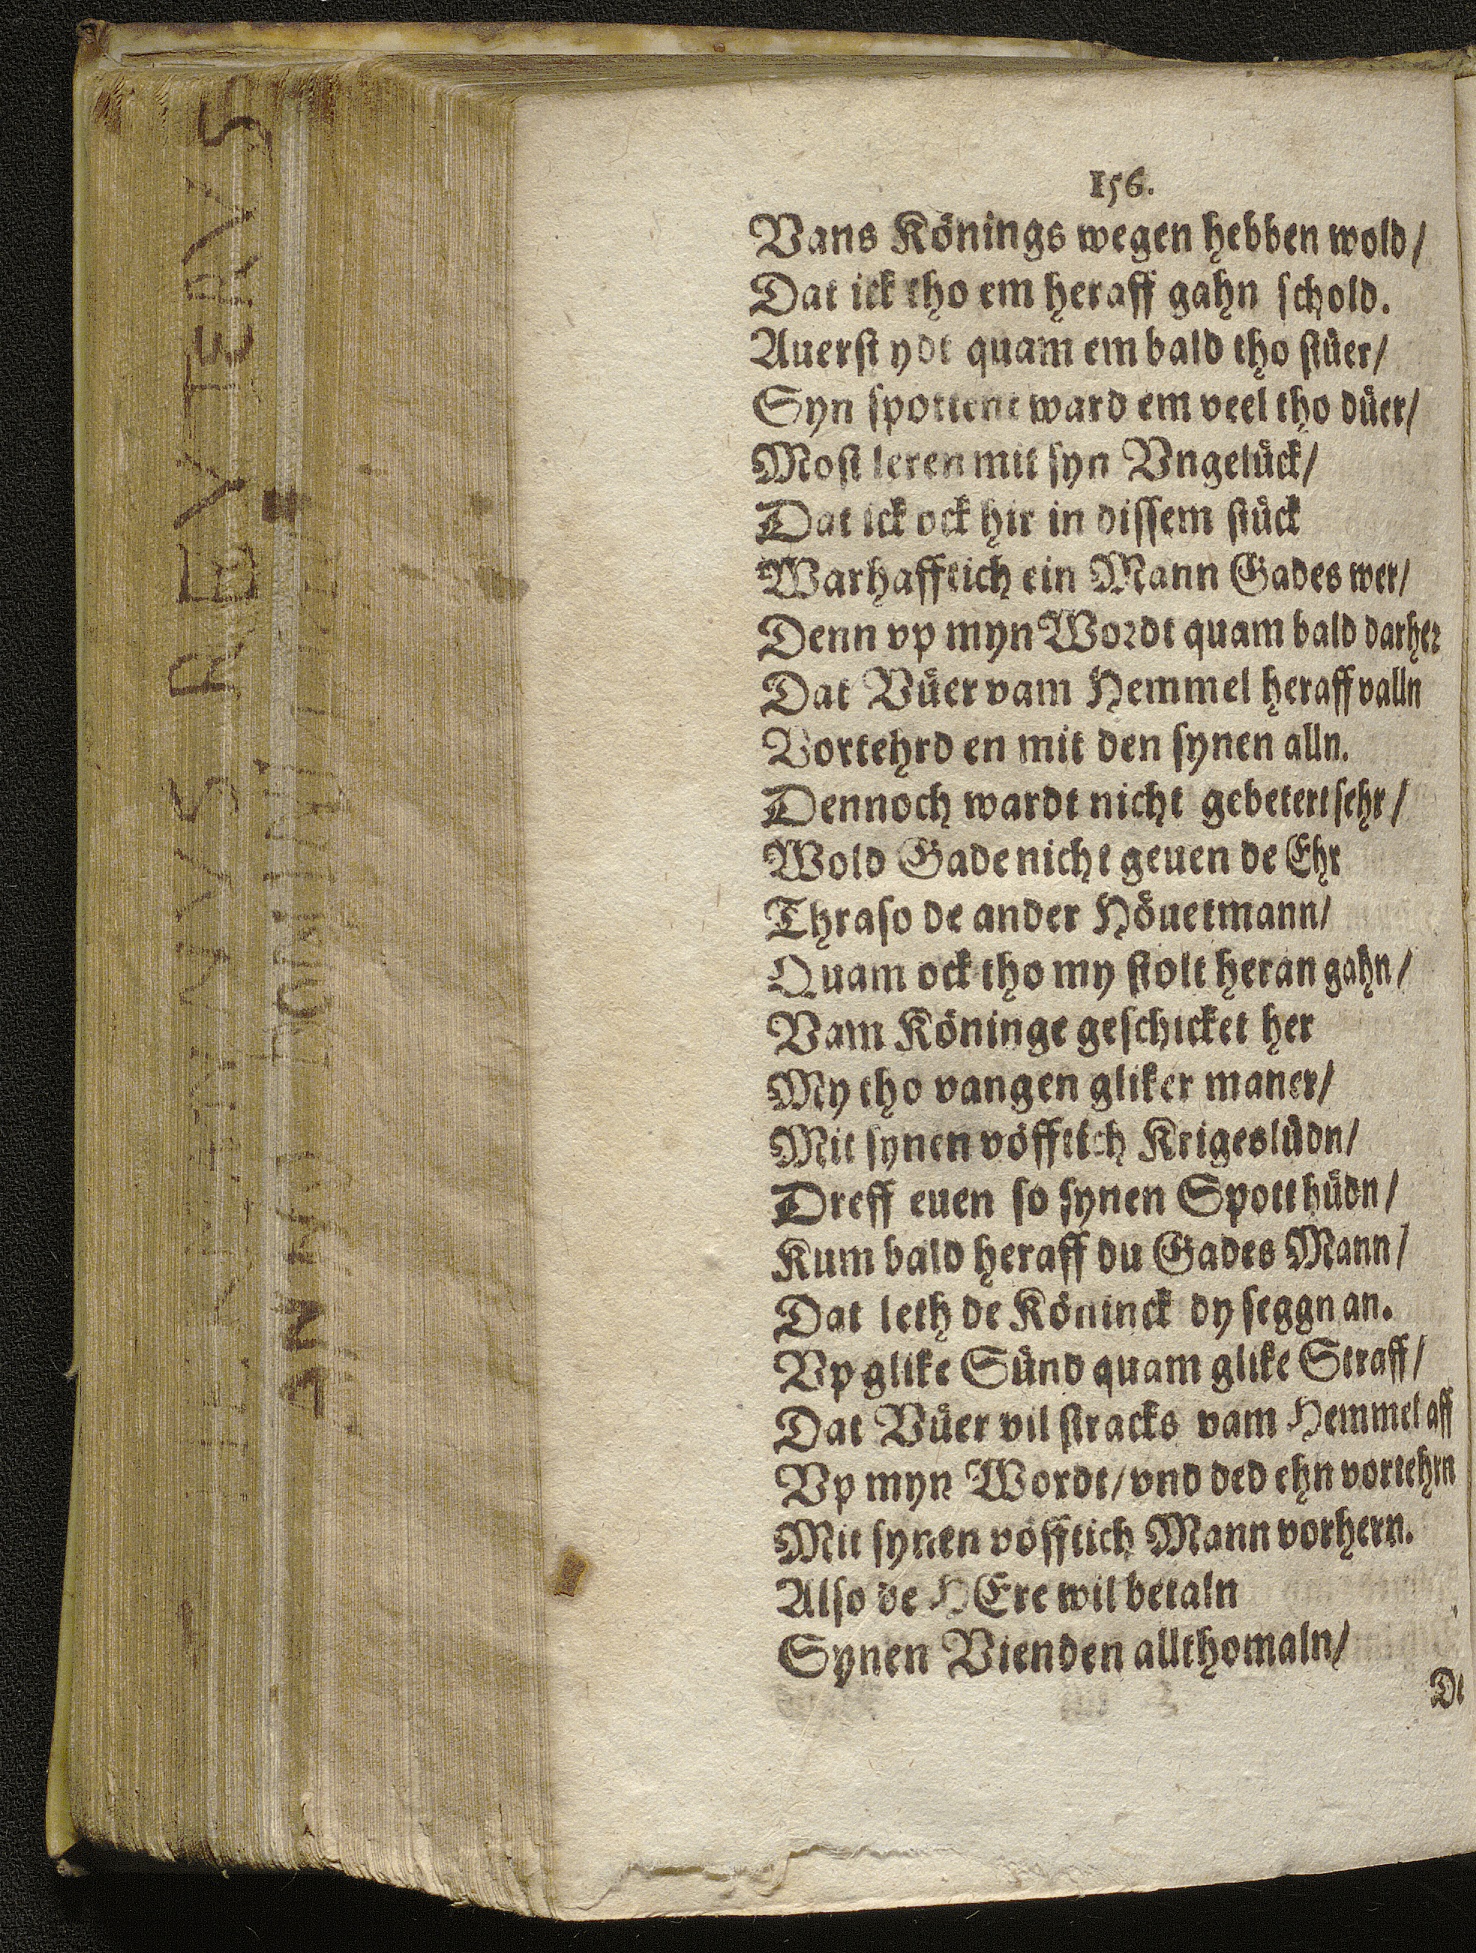 156.
Vans Königs wegen hebben wold/
Dat ick tho em heraff gahn schold.
Auerst ydt quam em bald tho stüer/
Syn spottent ward em veel tho düer/
Most leren mit syn Vngelück/
Dat ick ock hir in dissem stück
Warhafftich ein Mann Gades wer/
Denn vp myn Wordt quam bald darher
Dat Vüer vam Hemmel heraff valln
Vortehrd en mit den synen alln.
Dennoch wardt nicht gebetert sehr/
Wold Gade nicht geuen de Ehr
Thraso de ander Höuetmann/
Quam ock tho my stolt heran gahn/
Vam Köninge geschicket her
My tho vangen gliker maner/
Mit synen vöfftich Krigeslüdn/
Dreff euen so synen Spott hüdn/
Kum bald heraff du Gades Mann/
Dat leth de Köninck dy seggn an.
Vp glike Sünd quam glike Straff/
Dat Vüer vil stracks vam Hemmel aff
Vp myn Wordt/ vnd ded ehn vortehrn
Mit synen vöfftich Mann vorhern.
Also de HEre wil betaln
Synen Vienden allthomaln/